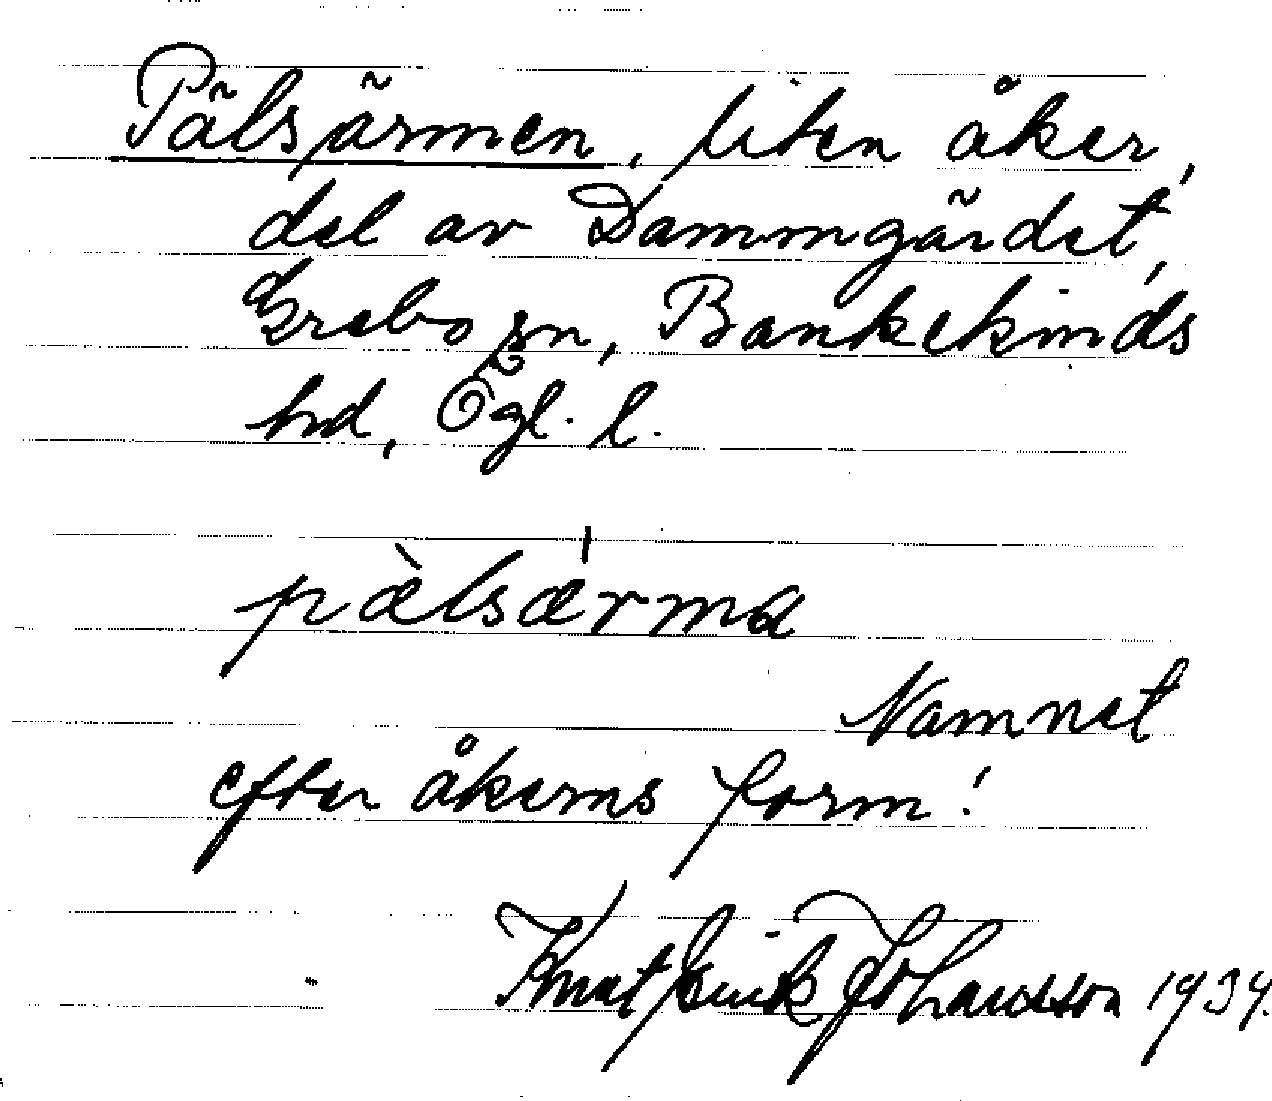 Pälsärmen, liten åker,
del av Dammgärdet,
Grebo sn, Bankekinds
hd, Ögl. l.
pæ̀lsǽrma
Namnet
efter åkerns form!
Knut Erik Johansson 1934.